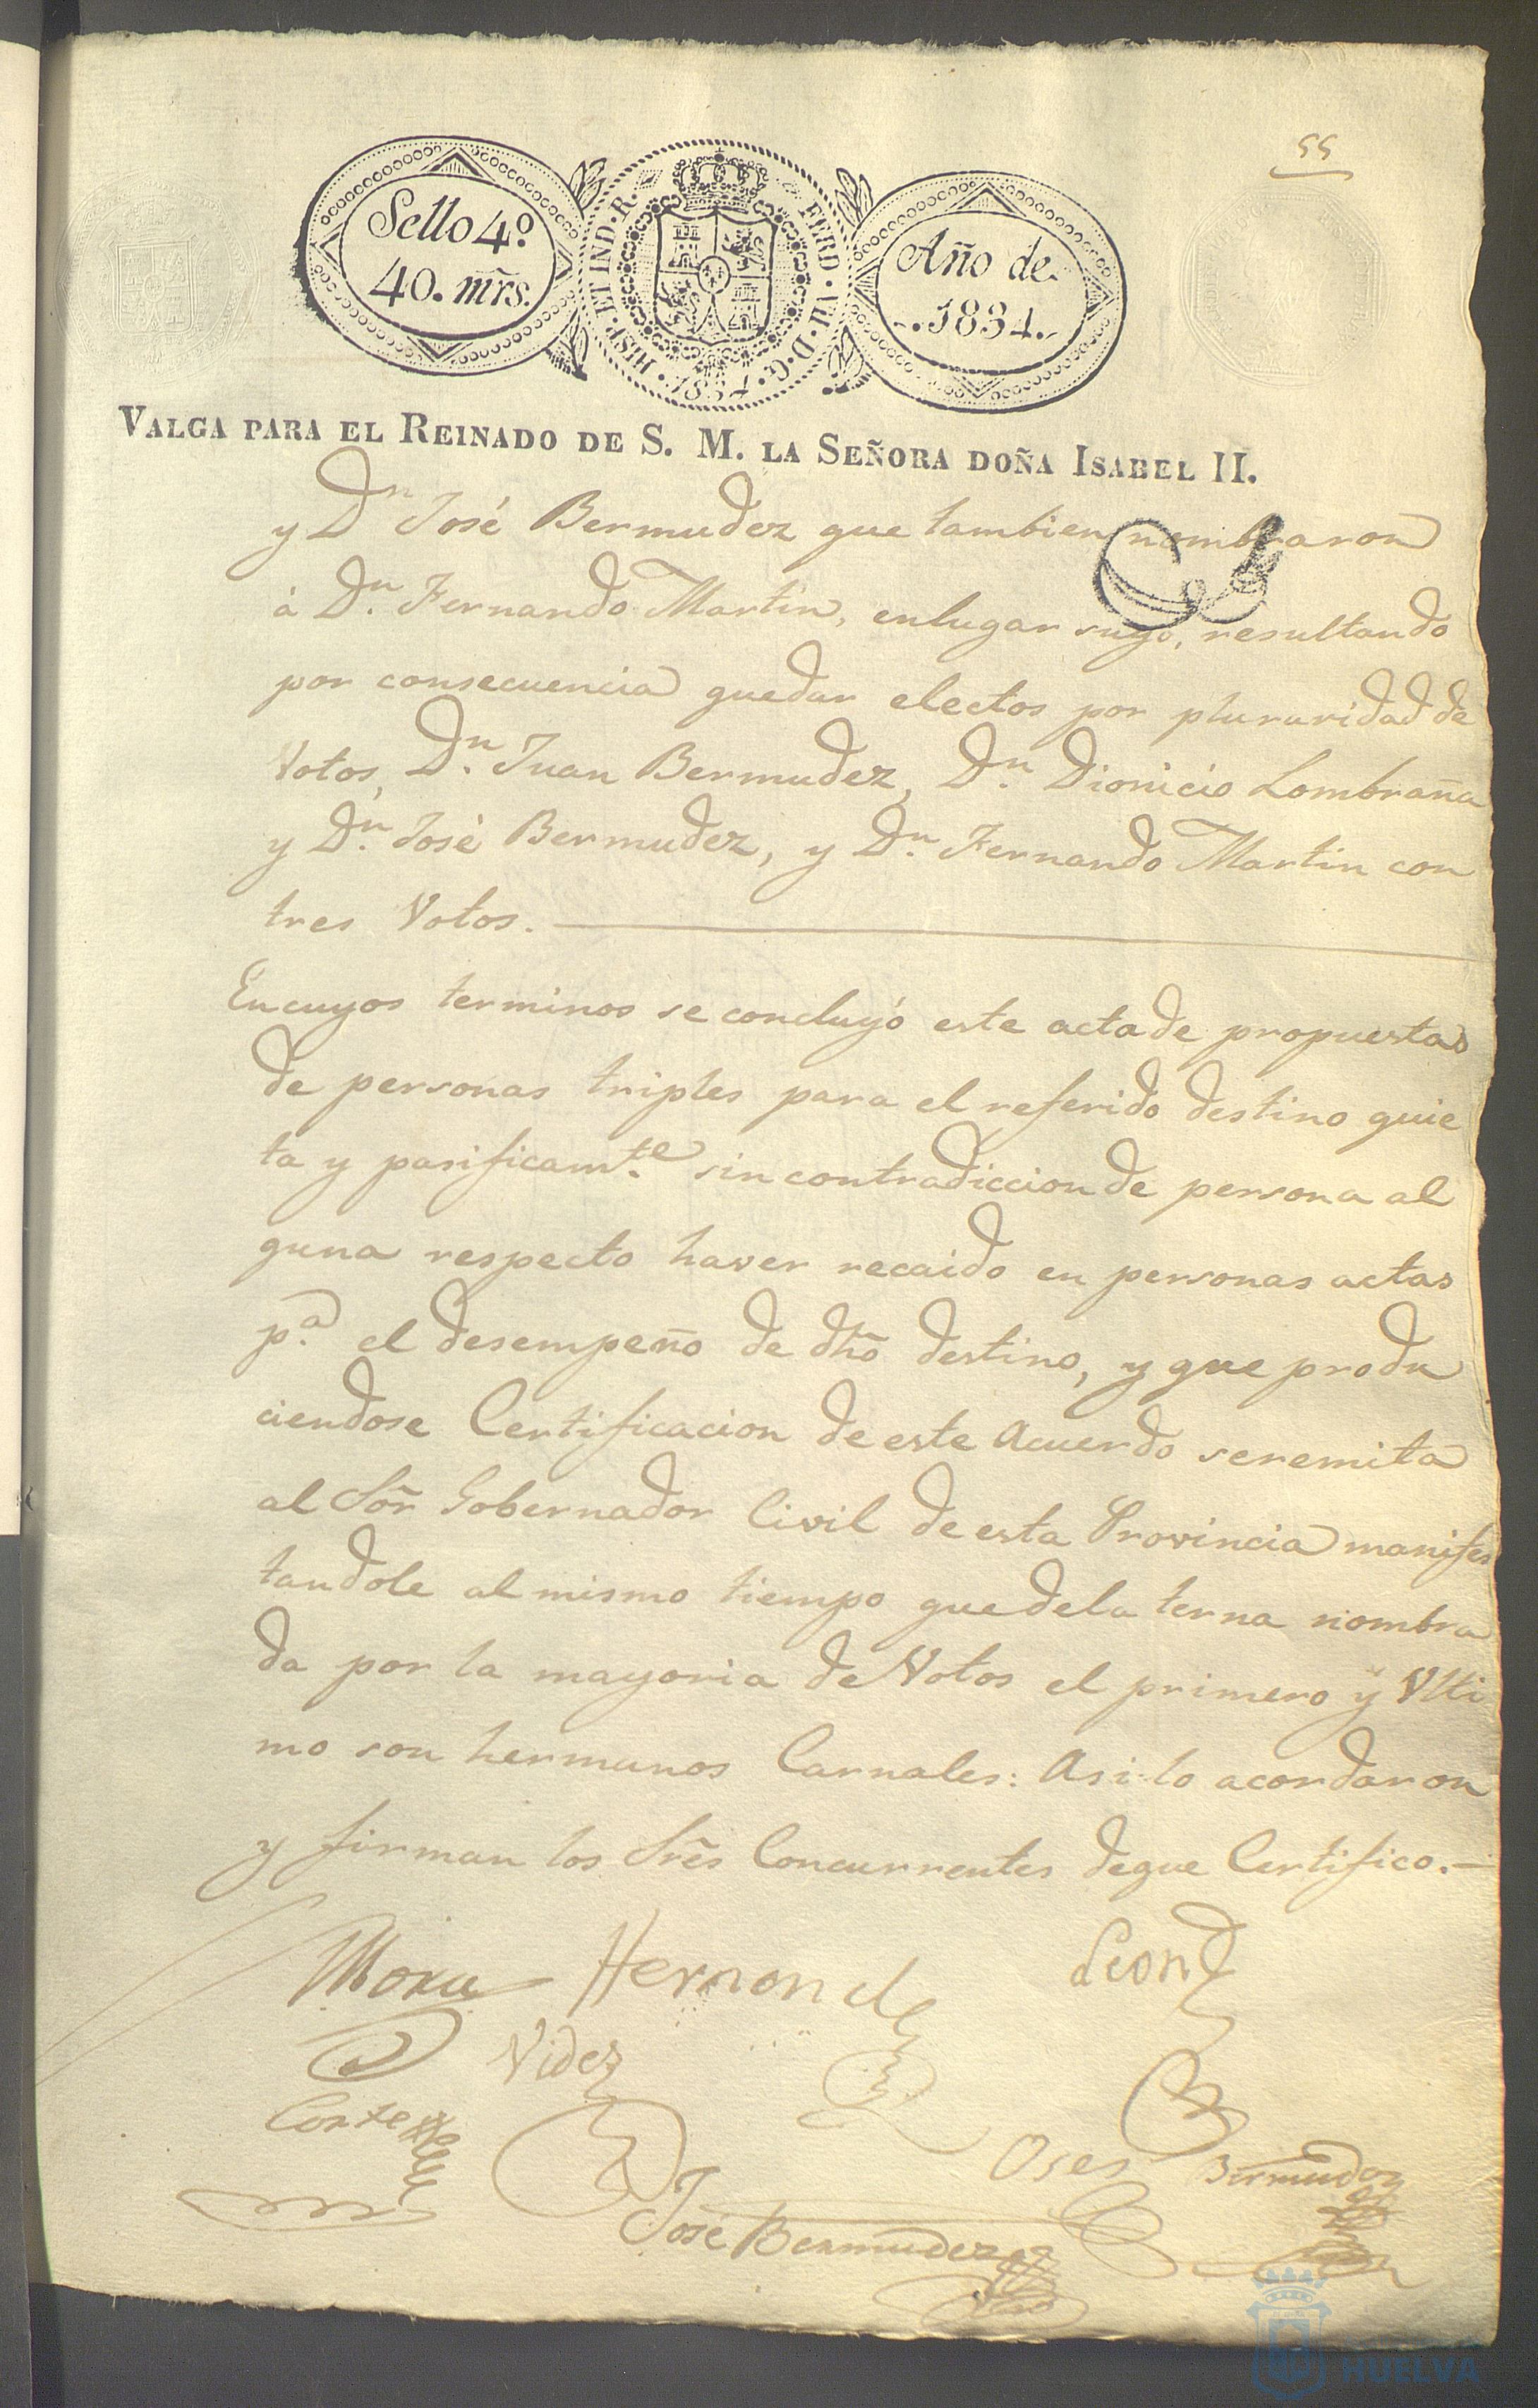 55
Sello 4º
40. mrs.
HISP. ET IND. R.
FERD. VII. D. G. 1834.
Año de
1834.
VALGA PARA EL REINADO DE S. M. LA SEÑORA DOÑA ISABEL II.
y Dn José Bermudez que tambien nombraron
à Dn. Fernando Martin, enlugar suyo, resultando
por consecuencia quedar electos por pluraridad de
Votos, Dn. Juan Bermudez, Dn. Dionicio Lombraña
y Dn. José Bermudez, y Dn. Fernando Martin con
tres Votos.
En cuyos terminos se concluyó este acta de propuestas
de personas triples para el referido destino quie
ta y pasificamte. sin contradiccion de persona al
guna respecto haver recaido en personas actas
pa. el desempeño de dho destino, y que produ
ciendose Certificacion de este Acuerdo seremita
al Sor Gobernador Civil de esta Provincia manifes
tandole al mismo tiempo que dela terna nombra
da por la mayoria de Votos el primero y Ulti
mo son hermanos Carnales: Asi lo acordaron
y firman los Sres Concurrentes deque Certifico.
Mora Hernandez Leon
Videz
Cortes
Oses Bermudez
José Bermudez
HUELVA